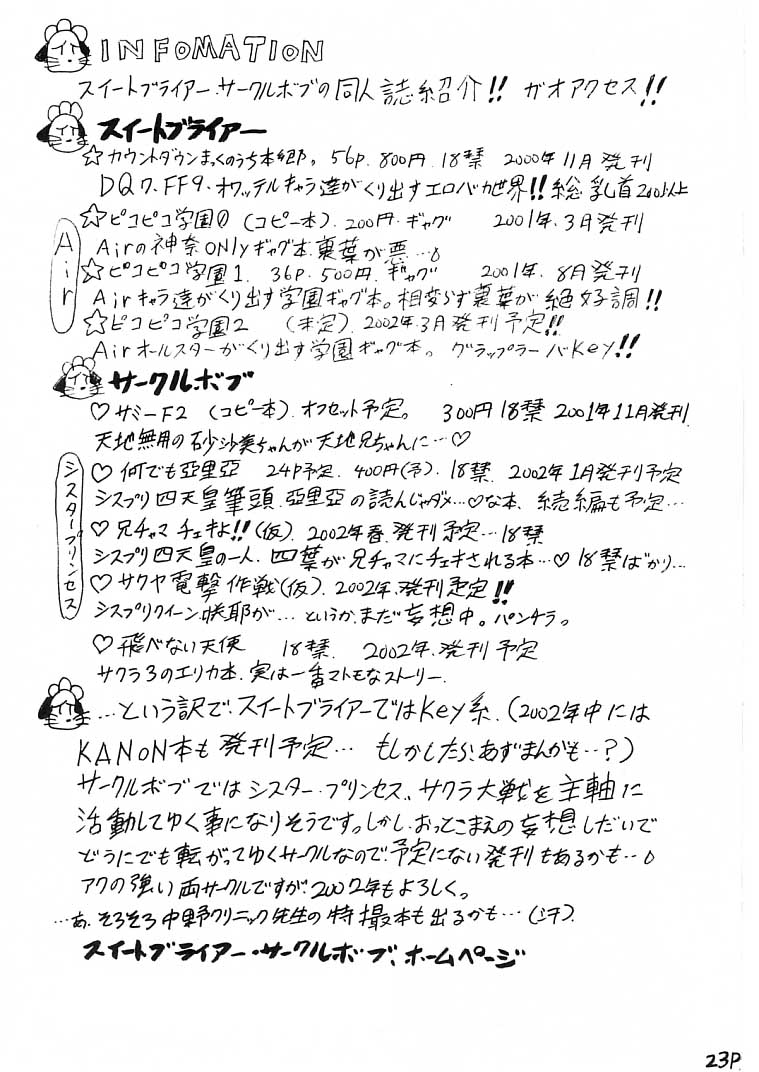 INFOMATION
スイートブライアー・サークルボブの同人誌紹介!! ガオアクセス!!
スイートブライアー
☆カウントダウンまっくのうち本郷。56P. 800円. 18禁 2000年11月発刊
DQ7、FF9、オワッテルキャラ達がくり出すエロバカ世界!!総乳首200以上
Air
☆ピコピコ学園0 (コピー本). 200円.ギャグ 2001年.3月発刊
Airの神奈ONlyギャグ本.裏葉が悪…。
☆ピコピコ学園1. 36P.500円.ギャグ 2001年.8月発刊
Airキャラ達がくり出す学園ギャグ本。相変らず裏葉が絶好調!!
☆ピコピコ学園2 (未定).2002年.3月発刊予定!!
Airオールスターがくり出す学園ギャグ本。グラップラーバKey!!
サークルボブ
♡サミーF2 (コピー本).オフセット予定。 300円18禁 2001年11月発刊.
天地無用の砂沙美ちゃんが天地兄ちゃんに…♡
シスタープリンセス
♡何でも亞里亞 24P予定. 400円(予). 18禁. 2002年1月発刊予定
シスプリ四天皇筆頭.亞里亞の読んじゃダメ…♡な本、続編も予定…
♡兄チャマ チェキよ!!(仮). 2002年春.発刊予定…18禁
シスプリ四天皇の一人.四葉が兄チャマにチェキされる本…♡ 18禁ばかり…
♡サクヤ電撃作戦(仮). 2002年.発刊予定!!
シスプリクイーン.咲耶が…というか.まだ妄想中。パンチラ。
♡飛べない天使 18禁. 2002年.発刊予定
サクラ3のエリカ本.実は一番マトモなストーリー.
…という訳で.スイートブライアーではKey系.(2002年中には
KANON本も発刊予定… もしかしたら.あずまんがも‥?)
サークルボブではシスター・プリンセス、サクラ大戦を主軸に
活動してゆく事になりそうです。しかし、おっとこまえの妄想しだいで
どうにでも転がってゆくサークルなので.予定にない発刊もあるかも…。
アクの強い両サークルですが.2002年もよろしく。
…あ.そろそろ中野クリニック先生の特撮本も出るかも…(汗).
スイートブライアー・サークルボブ、ホームページ
23P